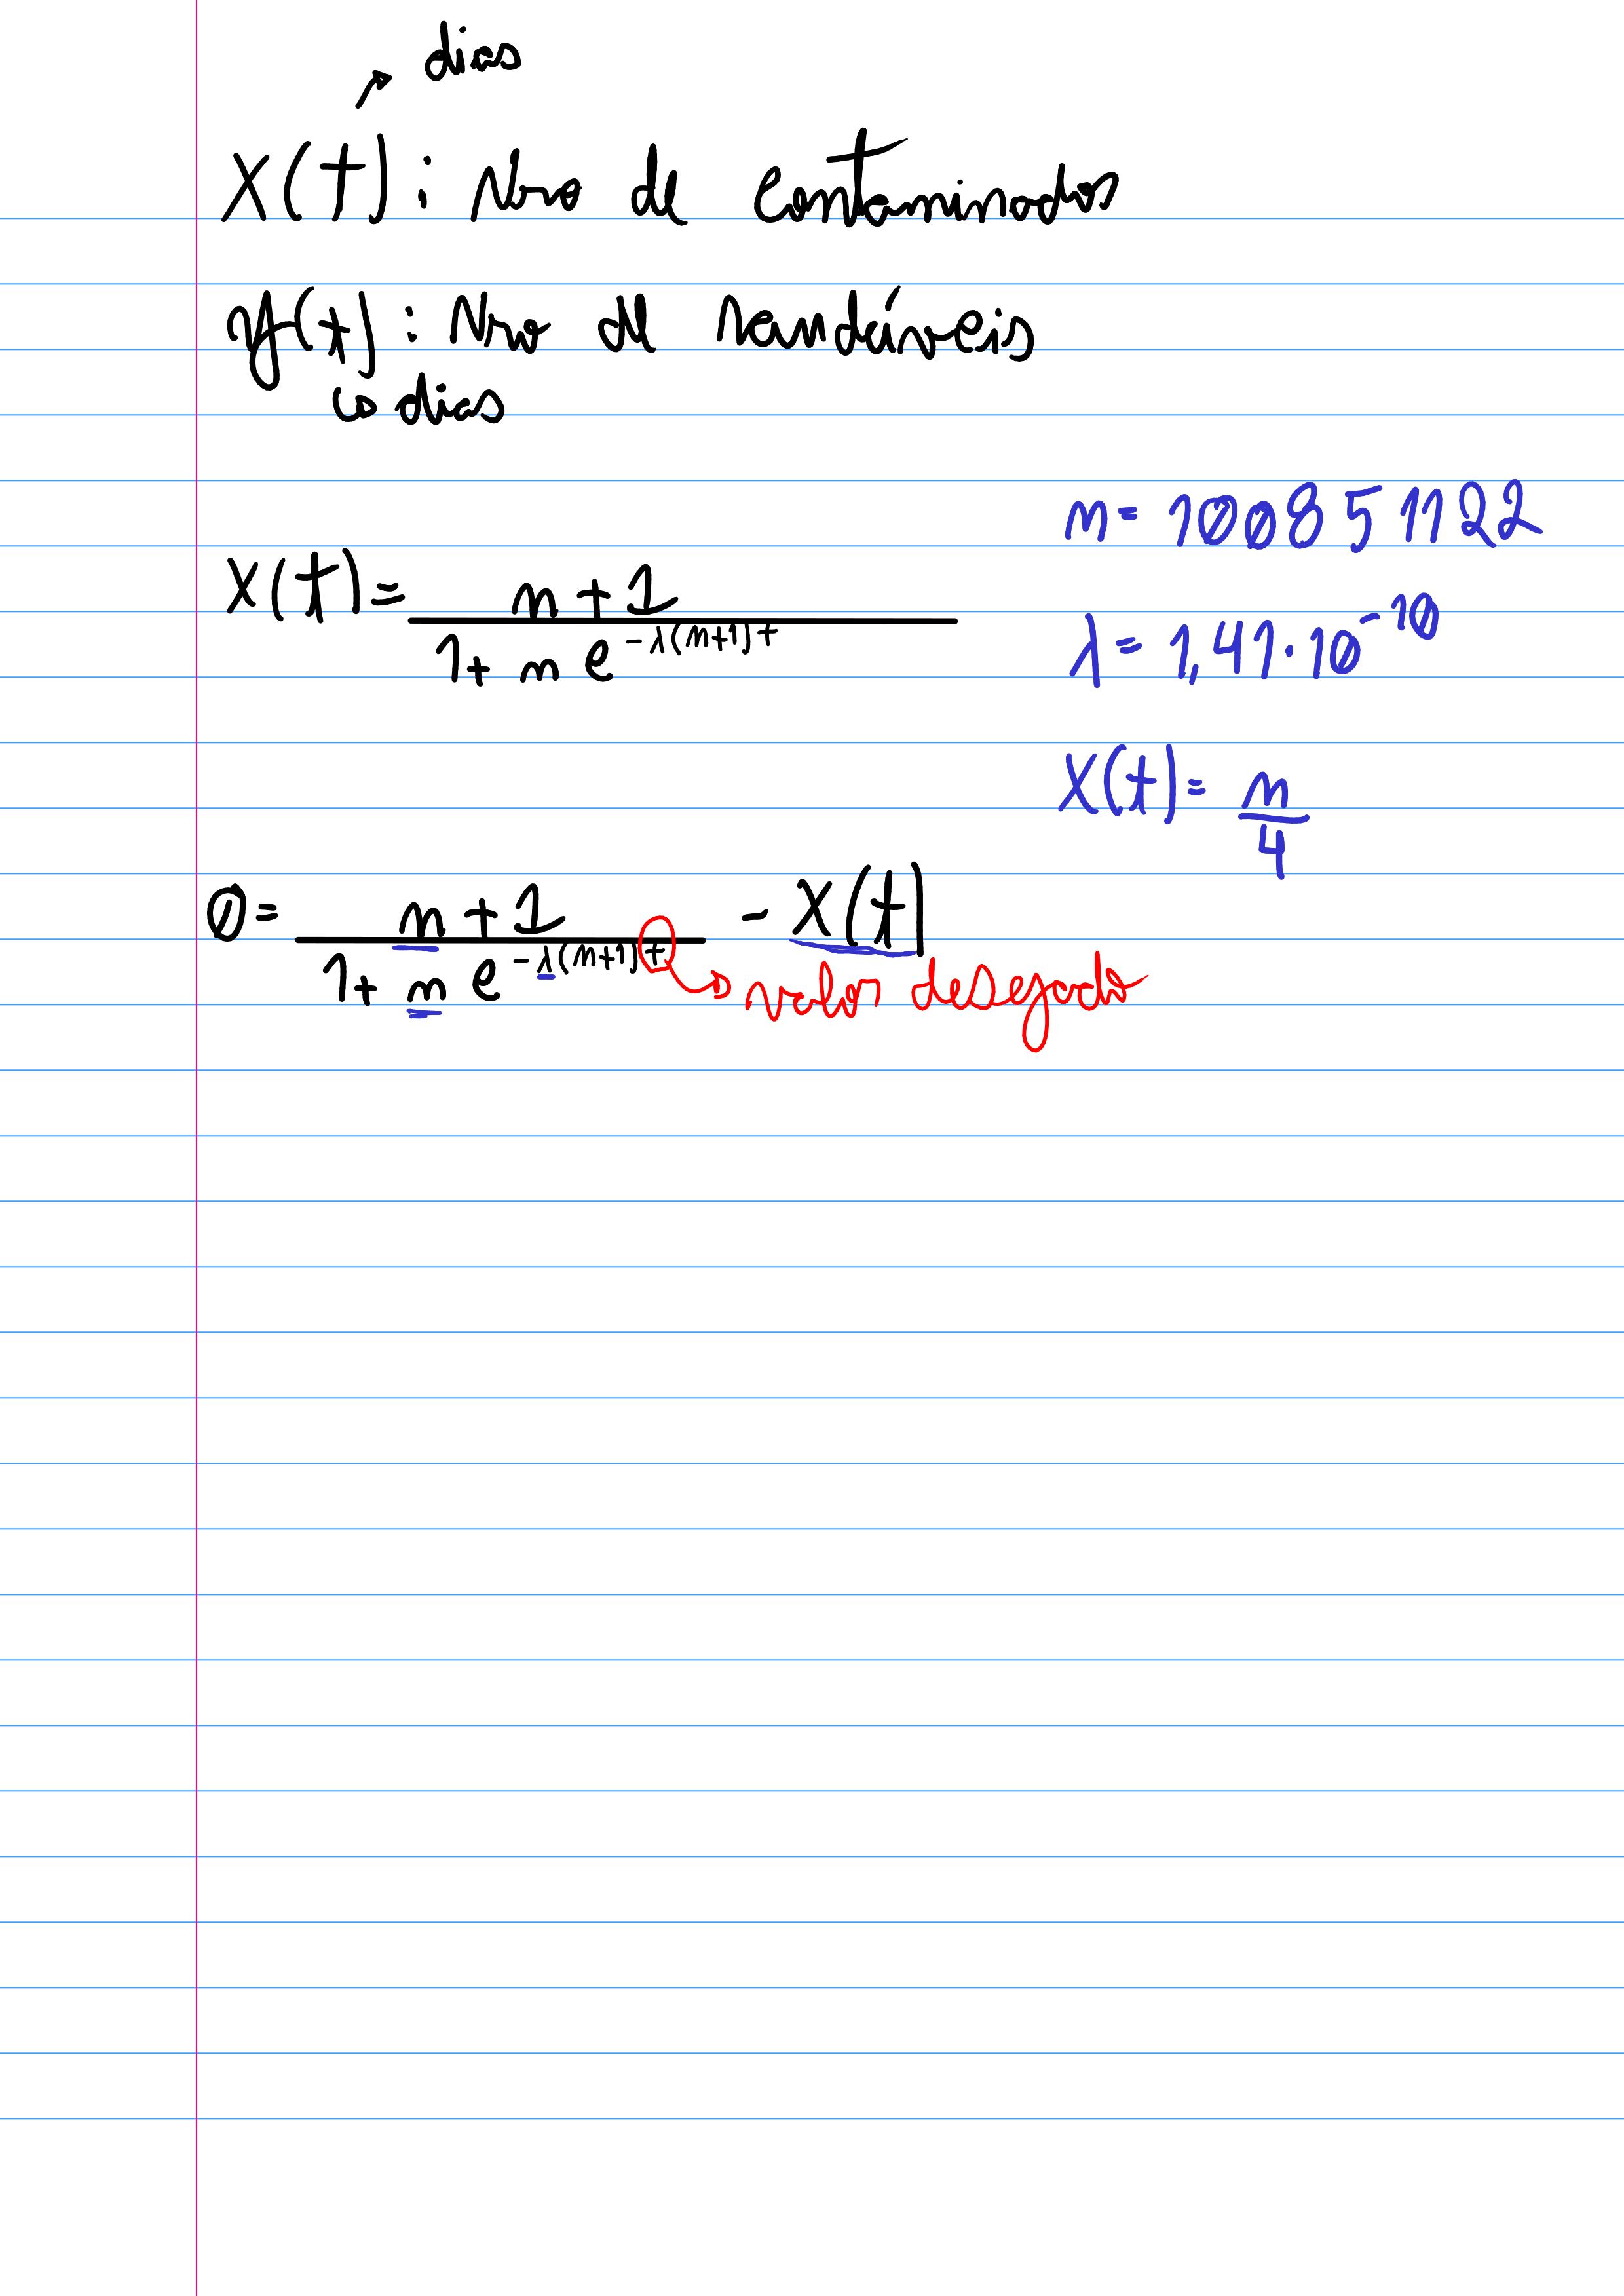 dias
X(t): Nro de contaminados
y(t): Nro de saudáveis
↳ dias
n = 100851122
X(t) = (n+1) / (1 + n e^(-λ(n+1)t))
λ = 1,41·10^-10
X(t) = n/4
0 = (n+1) / (1 + n e^(-λ(n+1)t)) - X(t)
→ valor desejado